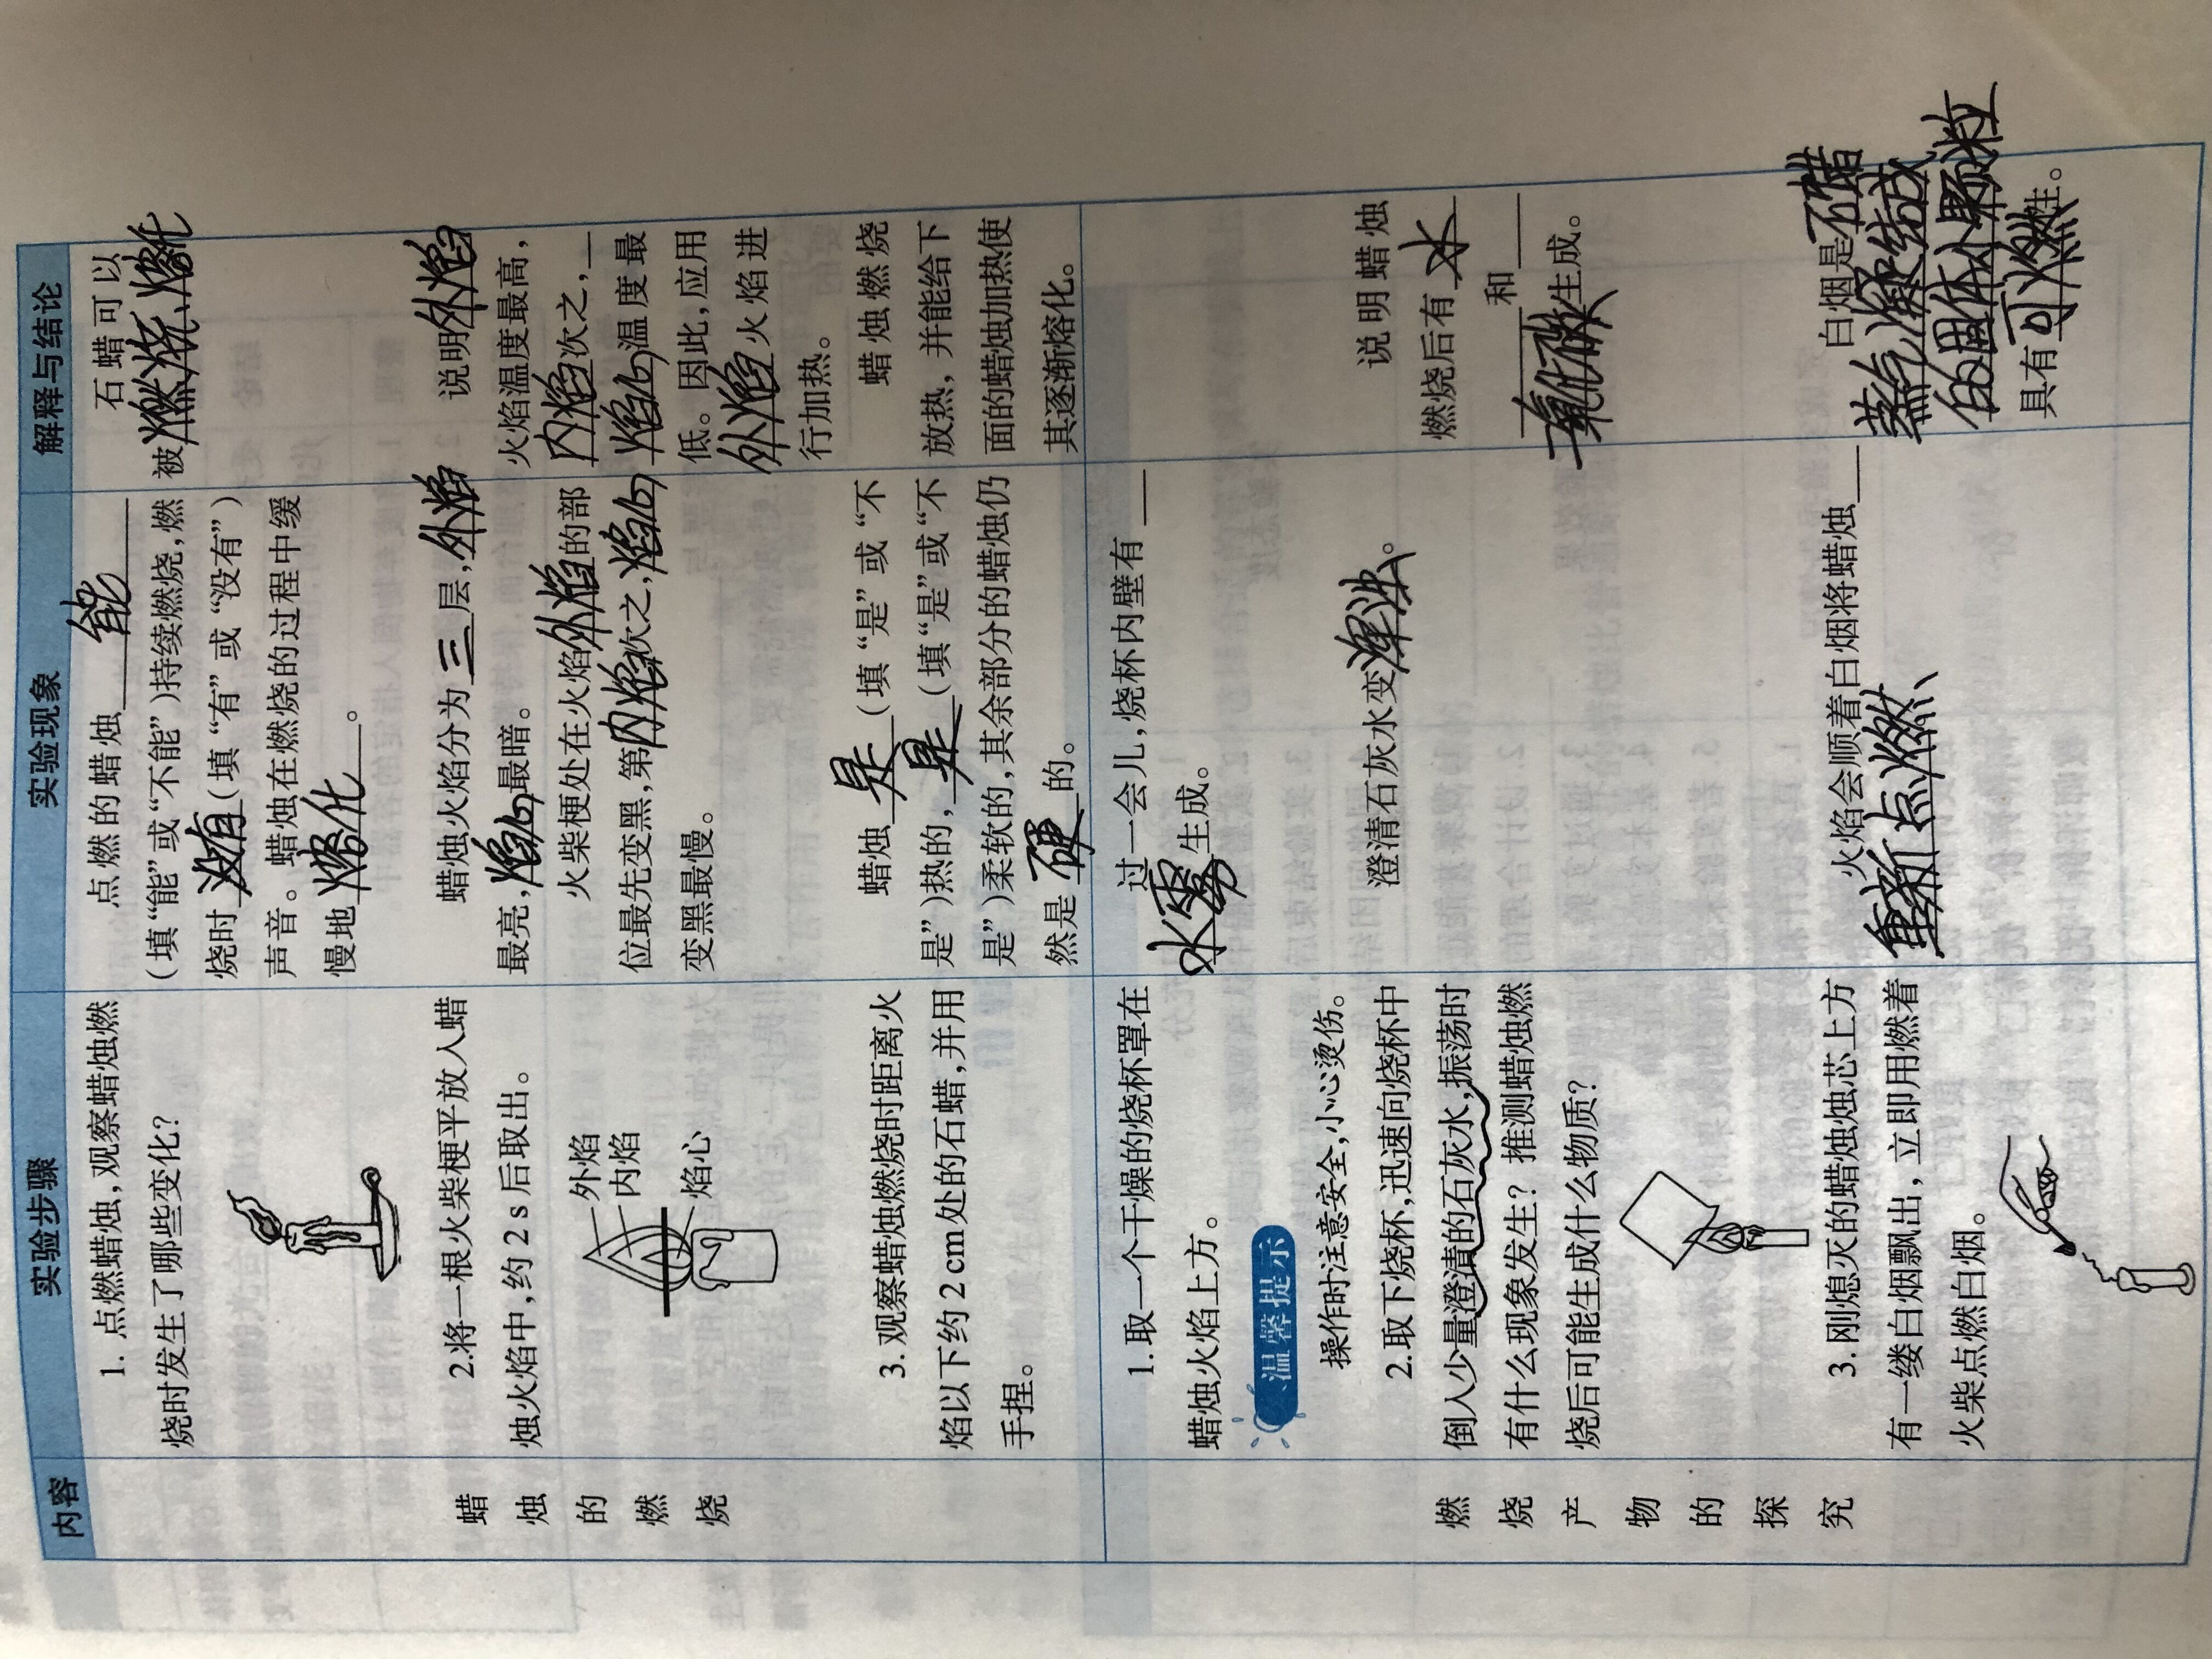 内容
实验步骤
实验现象
解释与结论
蜡
烛
的
燃
烧
1. 点燃蜡烛,观察蜡烛燃
烧时发生了哪些变化?
点燃的蜡烛能
(填“能”或“不能”)持续燃烧,燃
烧时没有(填“有”或“没有”)
声音。蜡烛在燃烧的过程中缓
慢地熔化。
石蜡可以
被燃烧、熔化
2.将一根火柴梗平放入蜡
烛火焰中,约 2 s 后取出。
外焰
内焰
焰心
蜡烛火焰分为三层,外焰
最亮,焰心最暗。
火柴梗处在火焰外焰的部
位最先变黑,第内焰次之,焰心
变黑最慢。
说明外焰
火焰温度最高,
内焰次之,
焰心温度最
低。因此,应用
外焰火焰进
行加热。
3. 观察蜡烛燃烧时距离火
焰以下约 2 cm 处的石蜡,并用
手捏。
蜡烛是(填“是”或“不
是”)热的,是(填“是”或“不
是”)柔软的,其余部分的蜡烛仍
然是硬的。
蜡烛燃烧
放热,并能给下
面的蜡烛加热使
其逐渐熔化。
燃
烧
产
物
的
探
究
1.取一个干燥的烧杯罩在
蜡烛火焰上方。
温馨提示
操作时注意安全,小心烫伤。
2.取下烧杯,迅速向烧杯中
倒入少量澄清的石灰水,振荡时
有什么现象发生? 推测蜡烛燃
烧后可能生成什么物质?
过一会儿,烧杯内壁有
水雾生成。
澄清石灰水变浑浊。
说明蜡烛
燃烧后有水
和
二氧化碳生成。
3.刚熄灭的蜡烛烛芯上方
有一缕白烟飘出,立即用燃着
火柴点燃白烟。
火焰会顺着白烟将蜡烛
重新点燃、
白烟是石蜡
蒸气凝结成
的固体小颗粒
具有可燃性。